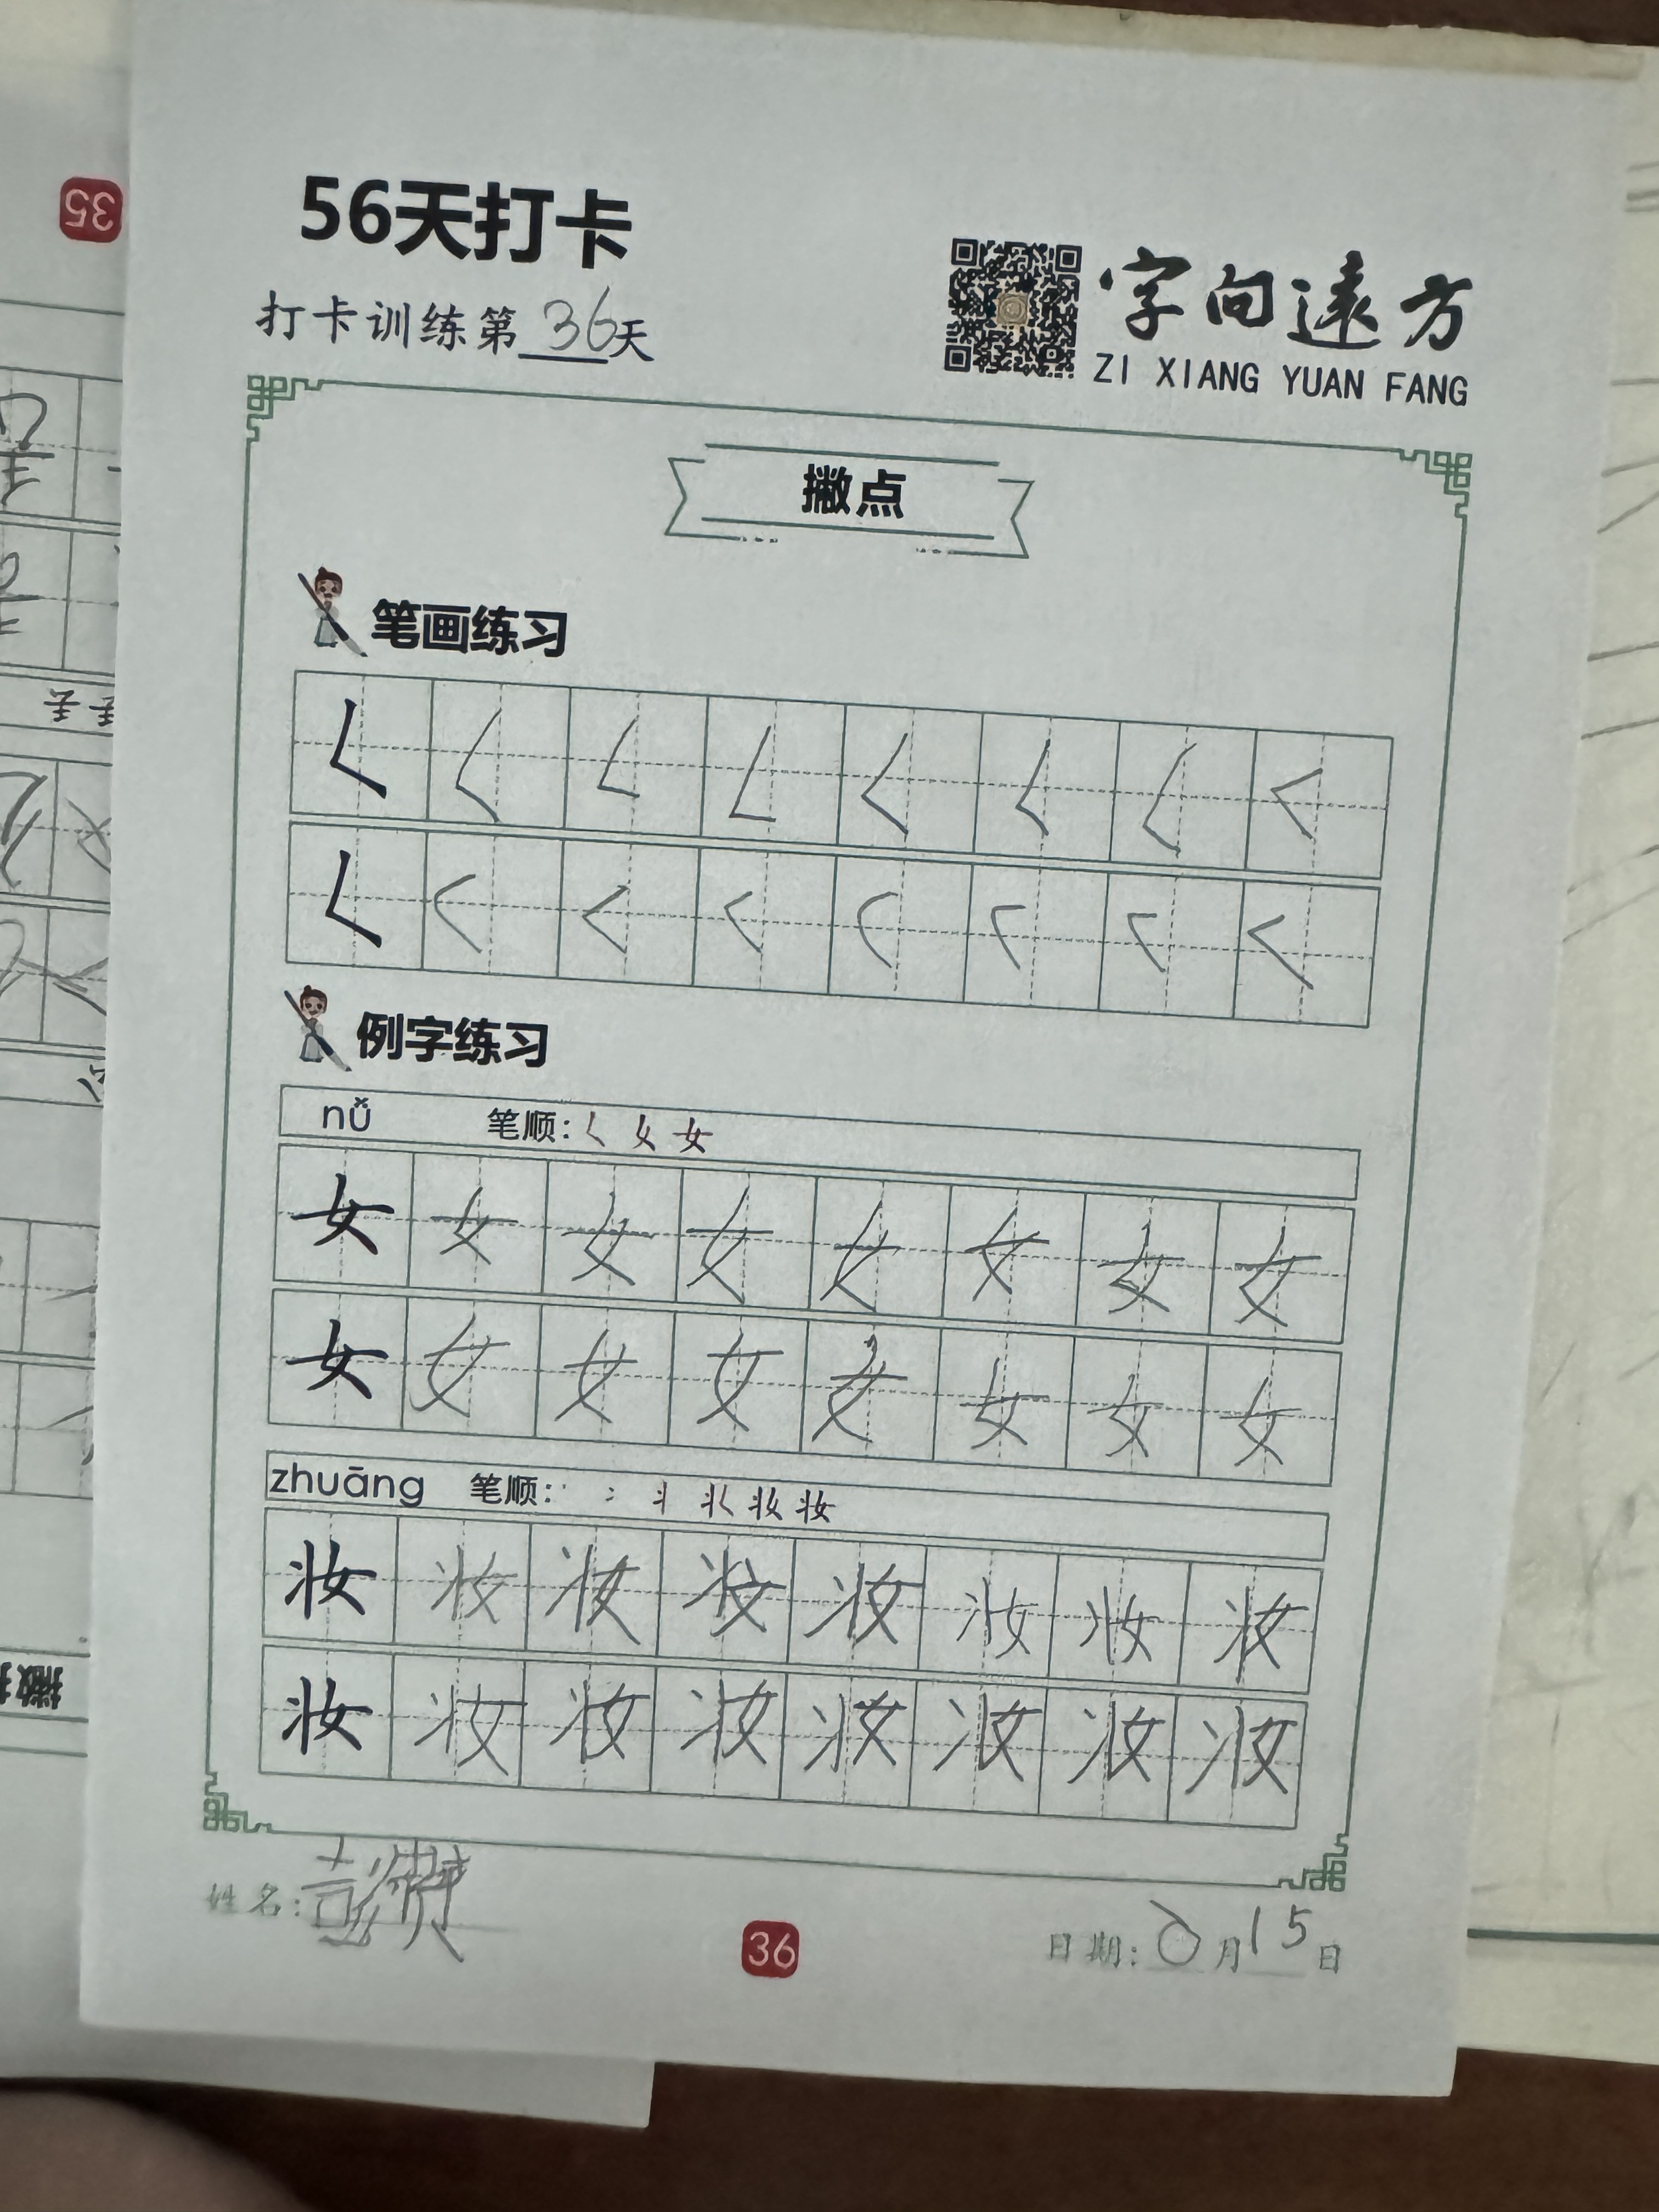 56天打卡
打卡训练第36天
字向遠方
ZI XIANG YUAN FANG
撇点
笔画练习
𡿨 𡿨 𡿨 𡿨 𡿨 𡿨 𡿨 𡿨
𡿨 𡿨 𡿨 𡿨 𡿨 𡿨 𡿨 𡿨
例字练习
nǚ 笔顺: 𡿨 女 女
女 女 女 女 女 女 女 女
女 女 女 女 女 女 女 女
zhuāng 笔顺: 妆
妆 妆 妆 妆 妆 妆 妆 妆
妆 妆 妆 妆 妆 妆 妆 妆
姓名: 彭
36
日期: 月15日
35